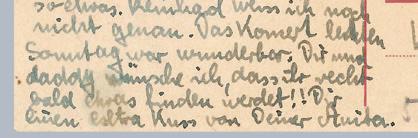 so etwas. Reinhard weiss ich noch
nicht genau. Das Konzert letzten
Sonntag war wunderbar. Dir und
daddy wünsche ich, dass ihr recht
bald etwas finden werdet!! Dir
einen extra Kuss von Deiner Anita.